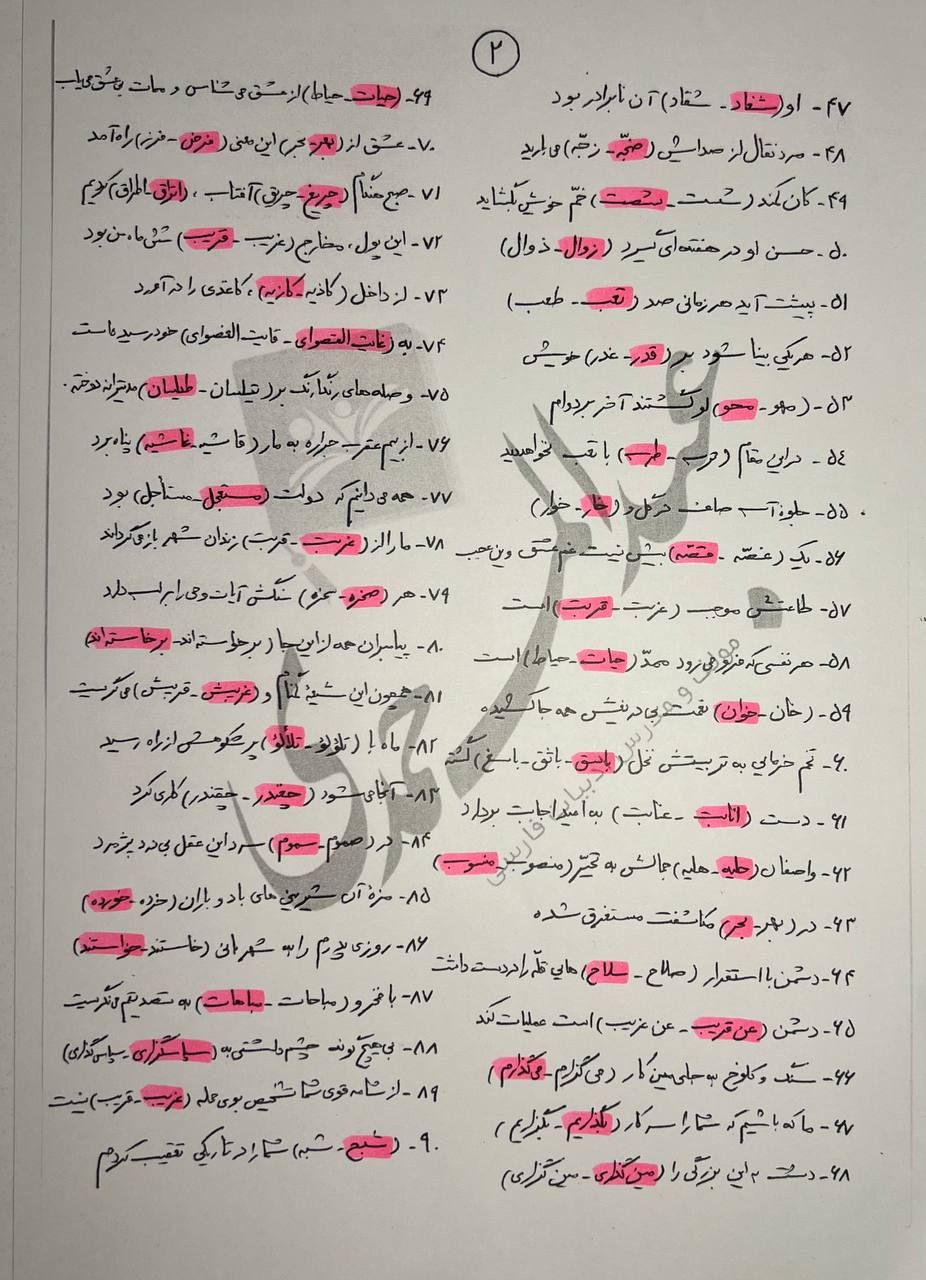 ۲
۴۷- او (شغاد - شقاد) آن نابرادر بود
۴۸- مرد نقال از صدایش (ضجّه - زجّه) می بارید
۴۹- کان کمند (شست - شصت) خمّ خویش بگشاید
۵۰- حسن او در هفته ای گیرد (زوال - ذوال)
۵۱- پیشت آید هر زمانی صد (تعب - طعب)
۵۲- هر یکی بینا شود بر (قدر - غدر) خویش
۵۳- (مهو - محو) او گشتند آخر بر دوام
۵۴- در این مقام (حرب - طرب) با تعب نخواهد دید
۵۵- جلوۀ آب صاف در گل و (خار - خوار)
۵۶- یک (غصّه - قصّه) بیش نیست غم عشق وین عجب
۵۷- طاعتش موجب (غربت - قربت) است
۵۸- هر نفسی که فرو می رود ممدّ (حیات - حیاط) است
۵۹- (خان - خوان) نعمت بی دریغش همه جا کشیده
۶۰- تخم خرمایی به تربیتش نخل (باسق - باثق - باسغ) گشته
۶۱- دست (انابت - عنابت) به امید اجابت بردارد
۶۲- واصفان (حلیه - هلیه) جمالش به تحیّر (منصوب - منسوب)
۶۳- در (بهر - بحر) مکاشفت مستغرق شده
۶۴- دشمن با استقرار (صلاح - سلاح) هایی قلّه را در دست داشت
۶۵- دشمن (عن قریب - عن غریب) است عملیات کند
۶۶- سنگ و کلوخ به جای مین کار (می گزارم - می گذارم)
۶۷- ما که باشیم که شما را سر کار (بگذاریم - بگزاریم)
۶۸- دست به این بزرگی را (مین گذاری - مین گزاری)
۶۹- (حیات - حیاط) از عشق می شناس و ممات بی عشق می یاب
۷۰- عشق از (بهر - بحر) این معنی (فرض - فرز) راه آمد
۷۱- صبح هنگام (چریغ - چریق) آفتاب، (اتراق - اطراق) کردیم
۷۲- این پول، مخارج (غریب - قریب) شش ماه من بود
۷۳- از داخل (کاذیه - کازیه)، کاغذی را درآورد
۷۴- به (غایت القصوای - قایت الغصوای) خود رسیده است
۷۵- وصله های رنگارنگ بر (تیلسان - طیلسان) مدیترانه دوخته.
۷۶- از بیم عقرب جراره به مار (قاشیه - غاشیه) پناه برد
۷۷- همه می دانیم که دولت (مستعجل - مستاجل) بود
۷۸- ما را از (غربت - قربت) زندان شهر باز می گرداند
۷۹- هر (صخره - سخره) سنگش آیات وحی را بر لب دارد
۸۰- پیامبران همه از این جا (برخواسته اند - برخاسته اند)
۸۱- همچون این شیعۀ گمنام و (غریبش - قریبش) می گریست
۸۲- ماه با (تلؤلؤ - تلألؤ) پرشکوهش از راه رسید
۸۳- آنجا می شود (چغندر - چقندر) کاری کرد
۸۴- در (صموم - سموم) سرد این عقل بی درد پژمرد
۸۵- مزۀ آن شیرینی های باد و باران (خرده - خورده)
۸۶- روزی پدرم را به شهربانی (خاستند - خواستند)
۸۷- با فخر و (مباحات - مباهات) به تصدیقم می نگریست
۸۸- بی هیچ گونه چشم داشتی به (سپاسگزاری - سپاس گذاری)
۸۹- از شامه قوی شما تشخیص بوی حمله (غریب - قریب) نیست
۹۰- (شبح - شبه) شما را در تاریکی تعقیب کردم
عبدالمحمدی
مولف و مدرس ادبیات فارسی